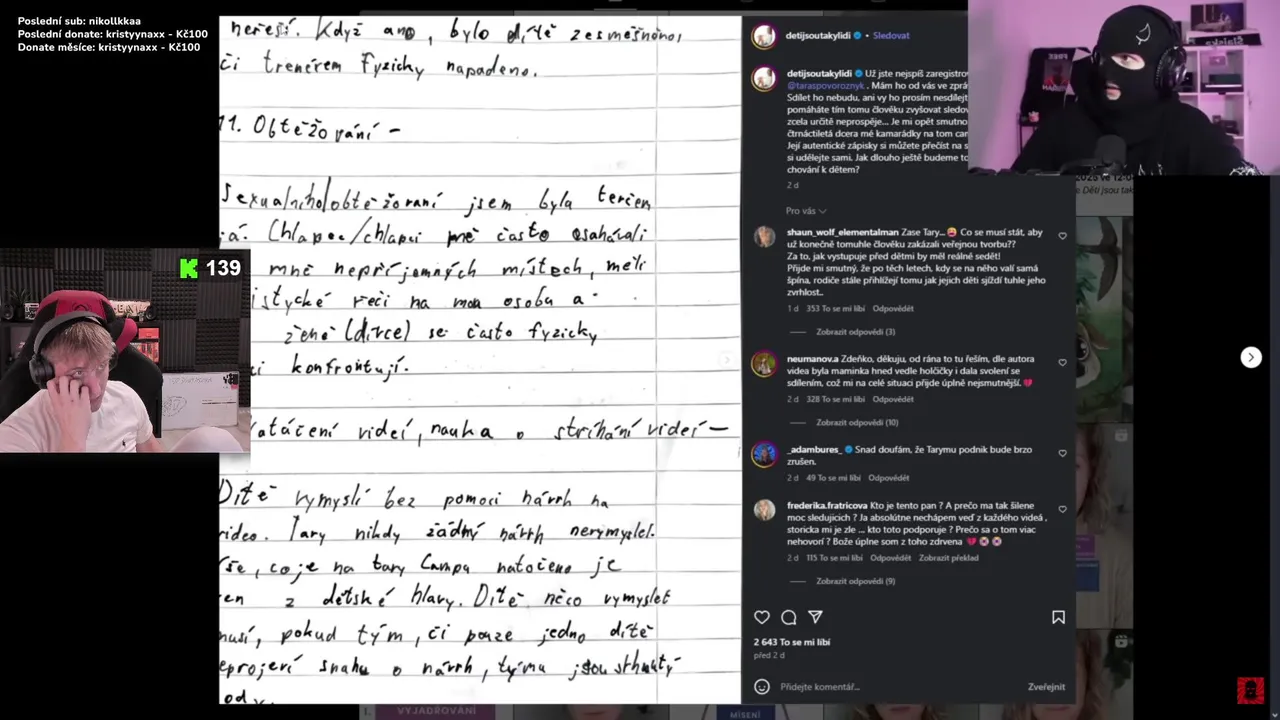 Poslední sub: nikollkkaa
Poslední donate: kristyynaxx - Kč100
Donate měsíce: kristyynaxx - Kč100
neřeší. Když ano, bylo dítě zesměšněno,
či trenérem fyzicky napadeno.
11. Obtěžování -
Sexualního obtěžovaní jsem byla terčem
já. Chlapec/chlapci mě často osahávali
mně nepříjemných místech, měli
istycké řeči na mou osobu a
ženě (dívce) se často fyzicky
i konfrontují.
atáčení videí, nauka o stříhání videí -
Dítě vymyslí bez pomoci návrh na
video. Tary nikdy žádný návrh nevymyslel.
še, co je na tary Campu natočeno je
en z dětské hlavy. Dítě něco vymyslet
musí, pokud tým, či pouze jedno dítě
eprojeví snahu o návrh, týmu jsou strhnuty
ody.
K 139
detijsoutakylidi • Sledovat
detijsoutakylidi Už jste nejspíš zaregistrov
@taraspovoroznyk . Mám ho od vás ve zprá
Sdílet ho nebudu, ani vy ho prosím nesdílejt
pomáháte tím tomu člověku zvyšovat sledov
zcela určitě neprospěje... Je mi opět smutno
čtrnáctiletá dcera mé kamarádky na tom cam
Její autentické zápisky si můžete přečíst na s
si udělejte sami. Jak dlouho ještě budeme to
chování k dětem?
2 d
Pro vás
shaun_wolf_elementalman Zase Tary...😝 Co se musí stát, aby
už konečně tomuhle člověku zakázali veřejnou tvorbu??
Za to, jak vystupuje před dětmi by měl reálně sedět!
Přijde mi smutný, že po těch letech, kdy se na něho valí samá
špína, rodiče stále přihlížejí tomu jak jejich děti sjíždí tuhle jeho
zvrhlost..
1 d 353 To se mi líbí Odpovědět
Zobrazit odpovědi (3)
neumanov.a Zdeňko, děkuju, od rána to tu řeším, dle autora
videa byla maminka hned vedle holčičky i dala svolení se
sdílením, což mi na celé situaci přijde úplně nejsmutnější. 💔
2 d 328 To se mi líbí Odpovědět
Zobrazit odpovědi (10)
_adambures_ Snad doufám, že Tarymu podnik bude brzo
zrušen.
2 d 49 To se mi líbí Odpovědět
frederika.fratricova Kto je tento pan ? A prečo ma tak šilene
moc sledujicich ? Ja absolútne nechápem veď z každého videá ,
storicka mi je zle ... kto toto podporuje ? Prečo sa o tom viac
nehovorí ? Bože úplne som z toho zdrvena 💔
2 d 115 To se mi líbí Odpovědět Zobrazit překlad
Zobrazit odpovědi (9)
2 643 To se mi líbí
před 2 d
Přidejte komentář... Zveřejnit
VYJADŘOVÁNÍ
MÍSENÍ